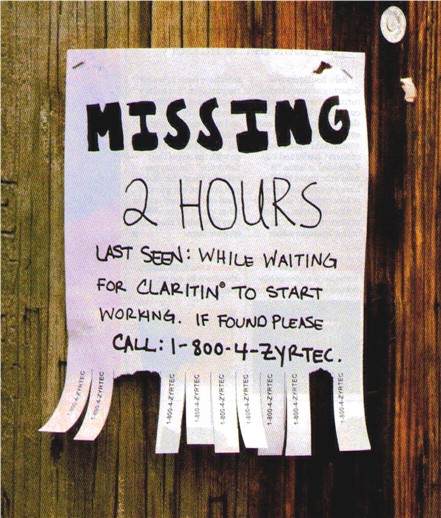 MISSING
2 HOURS
LAST SEEN: WHILE WAITING
FOR CLARITIN® TO START
WORKING. IF FOUND PLEASE
CALL: 1-800-4-ZYRTEC.
1-800-4-ZYRTEC
1-800-4-ZYRTEC
1-800-4-ZYRTEC
1-800-4-ZYRTEC
1-800-4-ZYRTEC
1-800-4-ZYRTEC
1-800-4-ZYRTEC
1-800-4-ZYRTEC
1-800-4-ZYRTEC